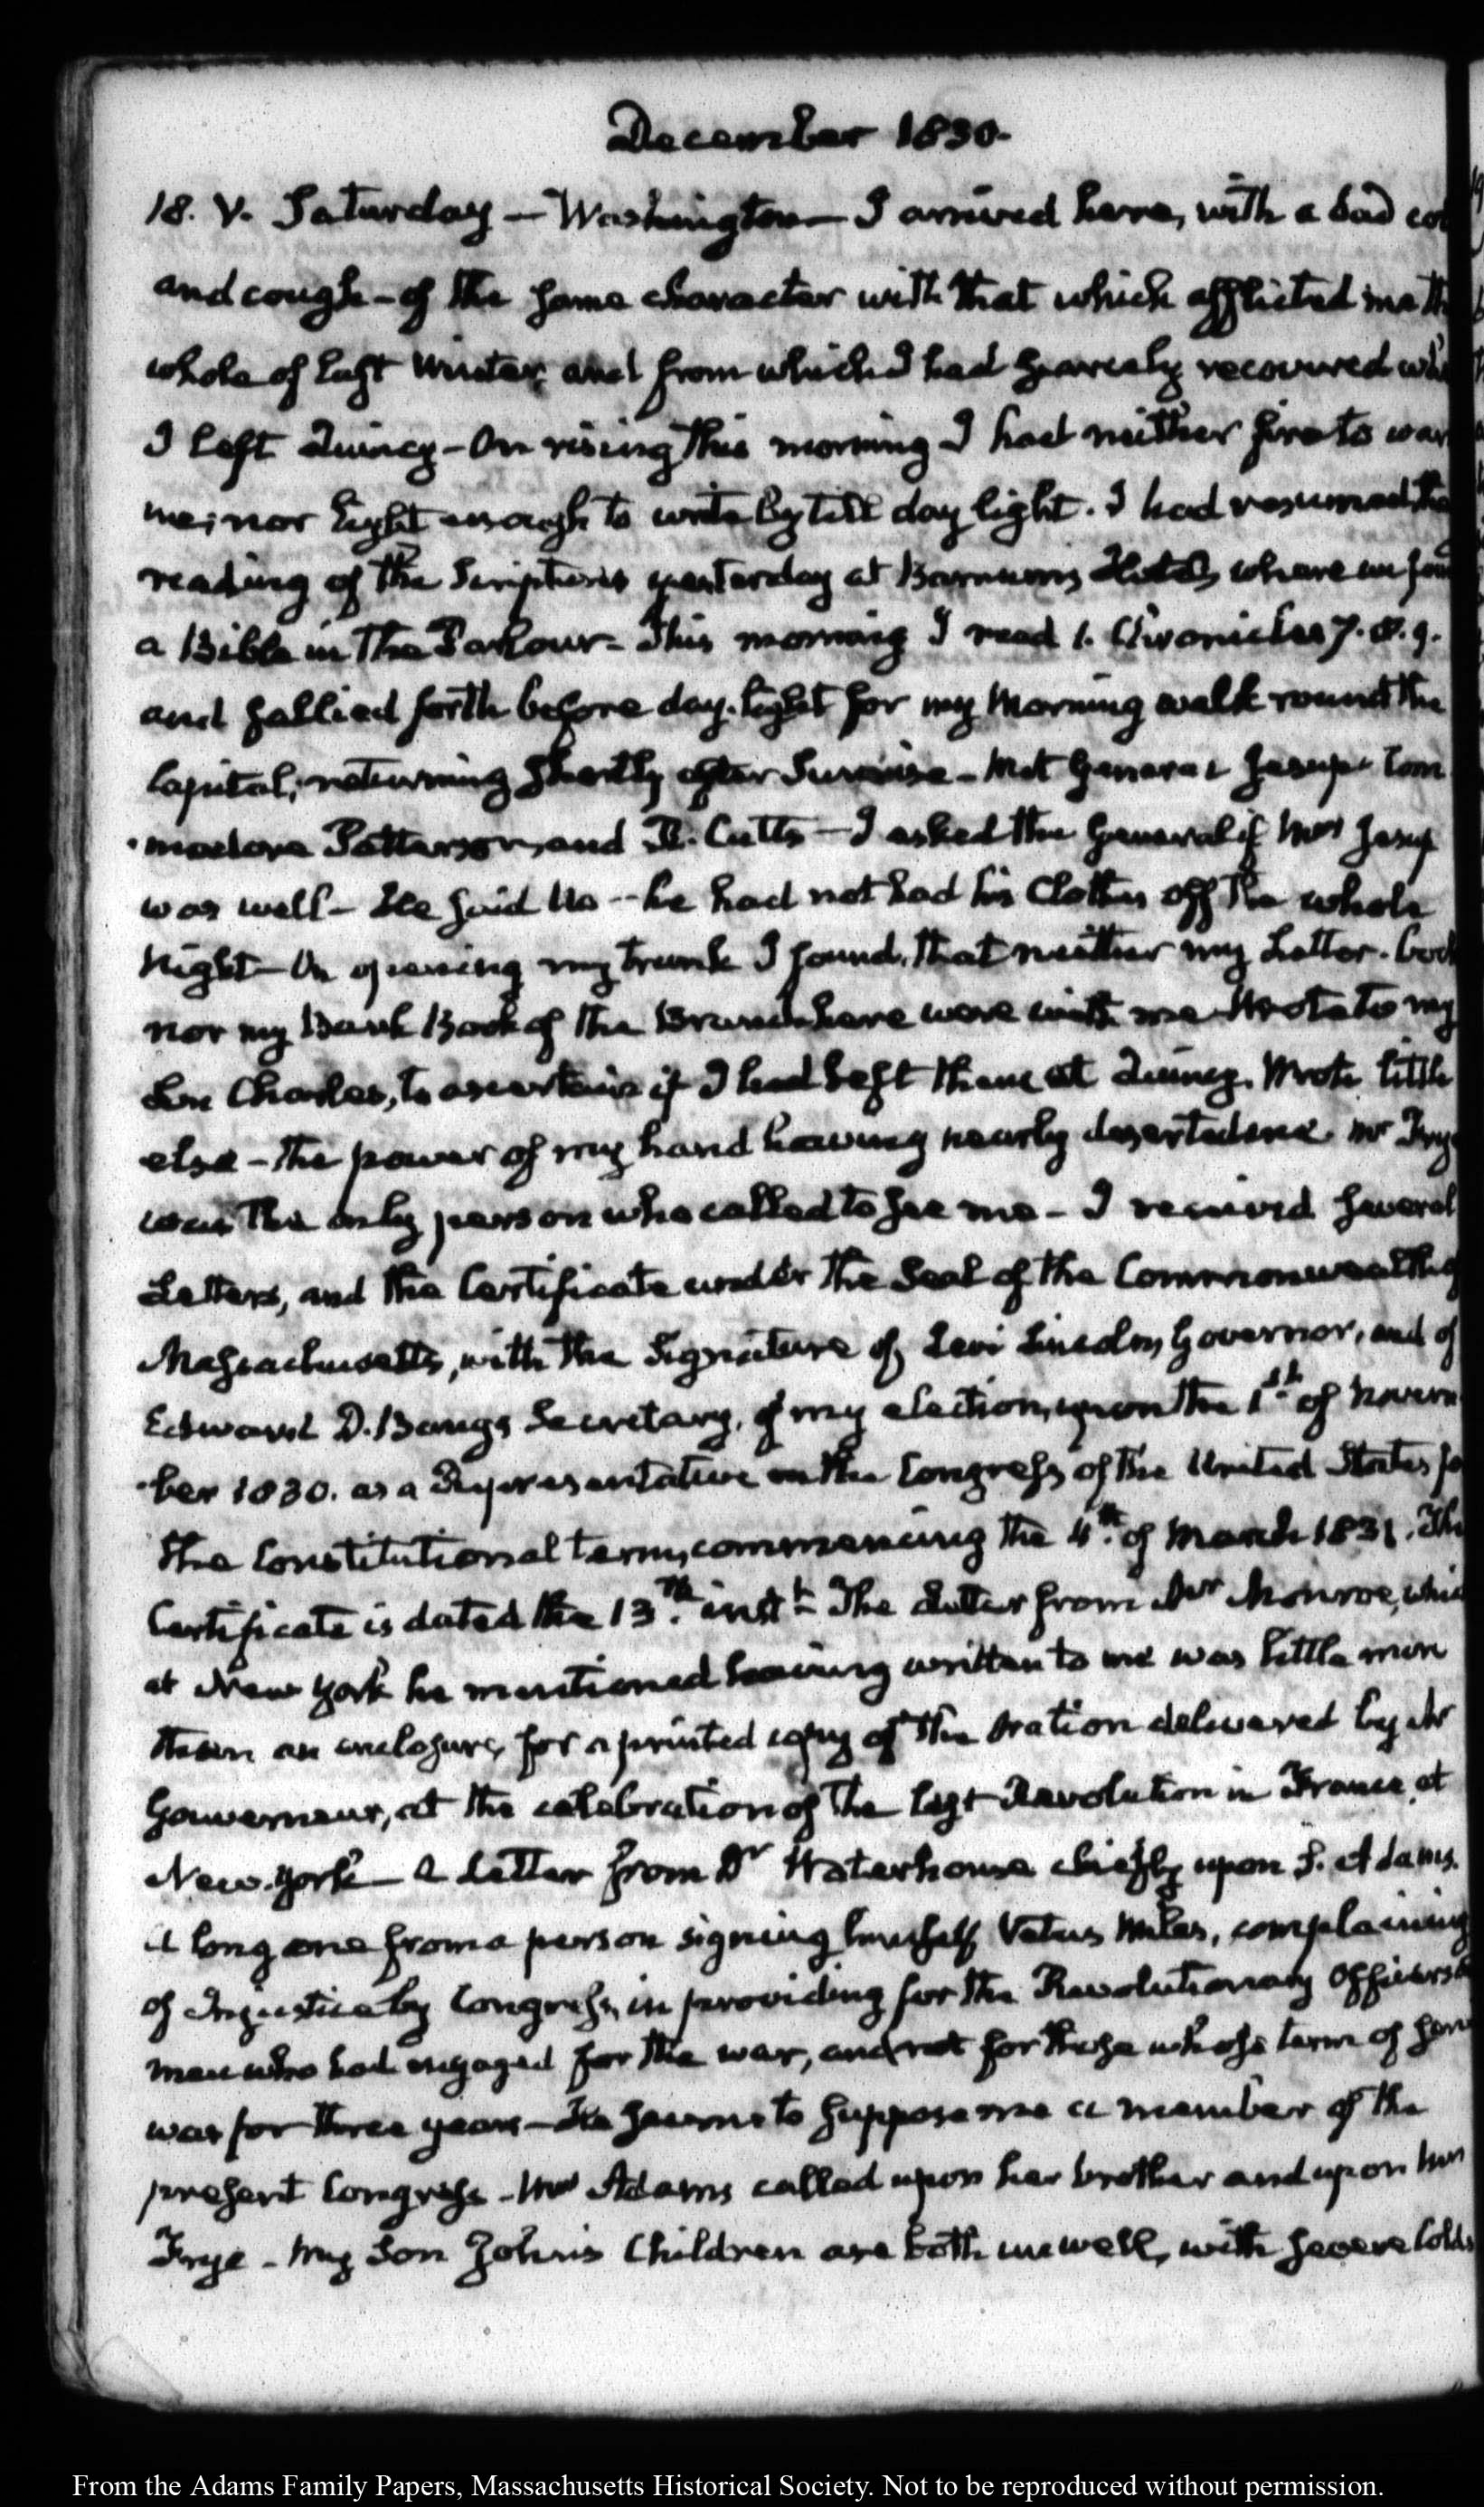 December 1830.
18. V. Saturday — Washington — I arrived here, with a bad co
and cough - of the same character with that which afflicted me th
whole of last Winter, and from which I had scarcely recovered wh
I left Quincy - On rising this morning I had neither fire to war
me, nor light enough to write by till day light. I had resumed the
reading of the Scriptures yesterday at Barnum's Hotel, where we fou
a Bible in the Parlour - This morning I read 1. Chronicles 7. 8. 9.
and sallied forth before day-light for my Morning walk round the
Capitol; returning shortly after Sunrise - Met General Jesup - Com
modore Patterson, and R. Cutts — I asked the General if Mrs Jesup
was well - He said No -- he had not had his Clothes off the whole
Night - On opening my trunk I found, that neither my Letter-Book
nor my Bank Book of the Branch here were with me - Wrote to my
Son Charles, to ascertain if I had left them at Quincy. Wrote little
else - the power of my hand having nearly deserted me. Mr Frye
was the only person who called to see me - I received several
Letters, and the Certificate under the Seal of the Commonwealth of
Massachusetts, with the Signature of Levi Lincoln, Governor, and of
Edward D. Bangs Secretary, of my election, upon the 1st of Novem
ber 1830. as a Representative in the Congress of the United States fo
the Constitutional term, commencing the 4th of March 1831. The
Certificate is dated the 13th instt - The Letter from Mr Monroe, whic
at New York he mentioned having written to me was little more
than an enclosure, for a printed copy of the Oration delivered by Mr
Gouverneur, at the celebration of the last Revolution in France, at
New-York — A Letter from Dr Waterhouse chiefly upon S. Adams.
A long one from a person signing himself Vetus Miles, complaining
of Injustice by Congress, in providing for the Revolutionary Officers &
men who had engaged for the war, and not for those whose term of serv
was for three years - He seems to suppose me a member of the
present Congress - Mrs Adams called upon her brother and upon Mrs
Frye - My Son John's Children are both unwell, with severe Colds
From the Adams Family Papers, Massachusetts Historical Society. Not to be reproduced without permission.